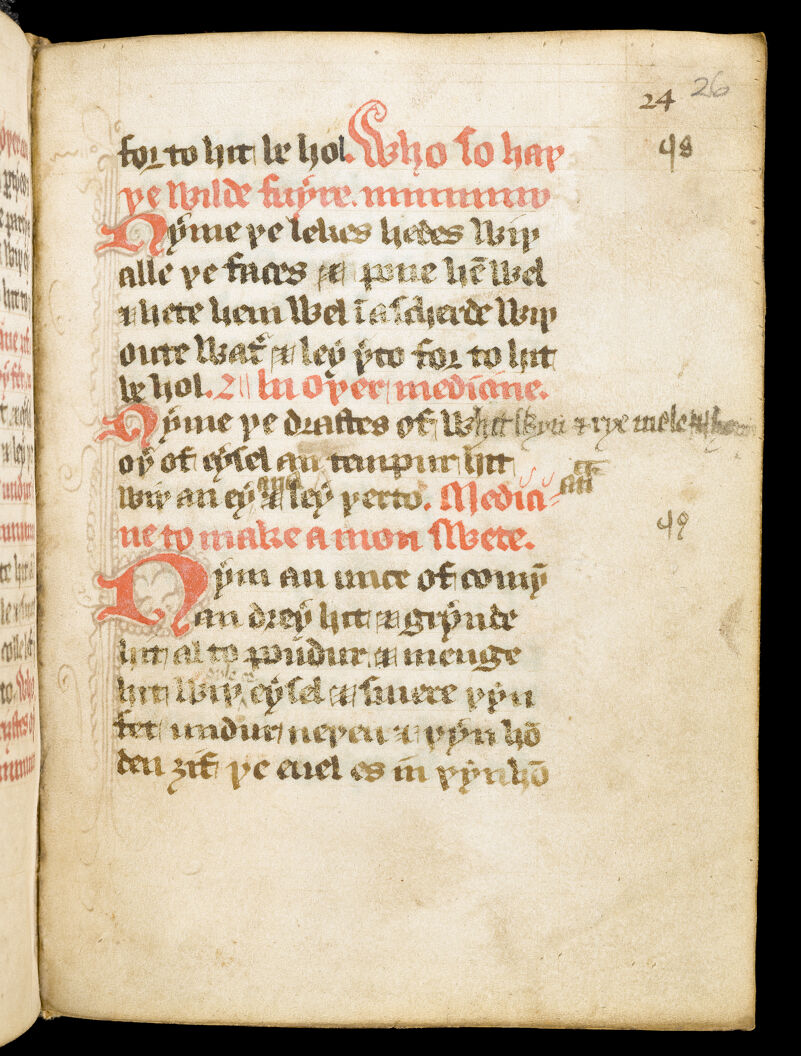 24 26
for to hit be hol. Who so haþ
48
þe wilde fuyre.
Nyme þe lekes hedes wiþ
alle þe faces & pone hē wel
& hete hem wel ī a scherde wiþ
oute wat̉ & ley þto for to hit
be hol. An oþer medicine.
Nyme þe drastes of whit & rye mele
oþ of eysel an tempur hit
wiþ an ey & ley þerto. Medici-
49
ne to make a mon swete.
Nym an unce of comyn
an drey hit & grynde
hit al to poudur & menge
hit wiþ eysel & smere þyn
fet undur neþen & þyn hō
den ȝif þe euel es in þyn hō